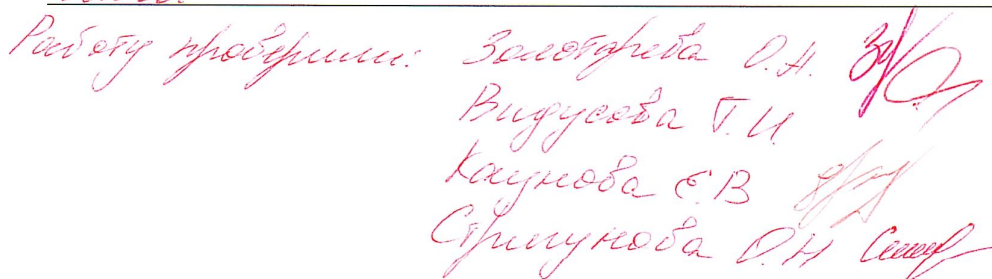 Работу проверили: Золотарева О.Н.
Видусова Т.И.
Каунова Е.В
Стрипунова О.Н